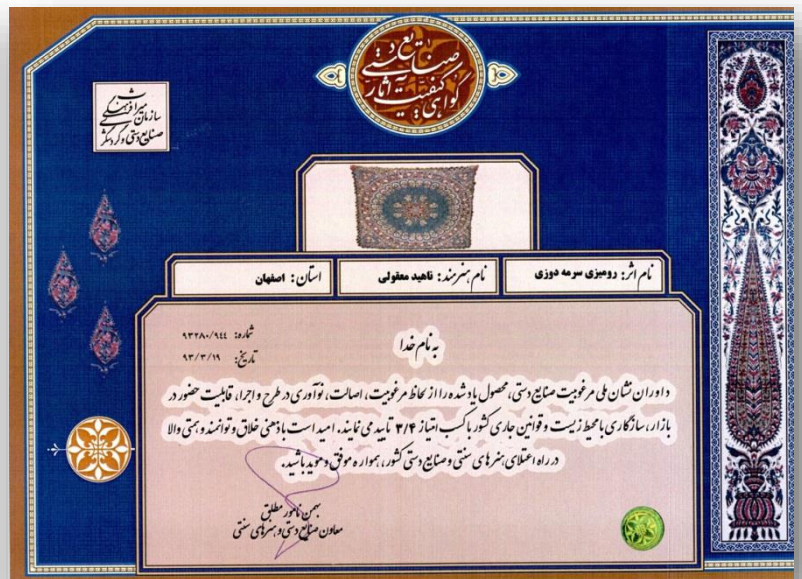 گواهی کیفیت آثار صنایع دستی
سازمان میراث فرهنگی
صنایع دستی و گردشگری
نام اثر: رومیزی سرمه دوزی
نام هنرمند: ناهید معقولی
استان: اصفهان
شماره: ۹۳۲۸۰/۹۴۴
تاریخ: ۹۳/۳/۱۹
به نام خدا
داوران نشان ملی مرغوبیت صنایع دستی، محصول یاد شده را از لحاظ مرغوبیت، اصالت، نوآوری در طرح و اجرا، قابلیت حضور در
بازار، سازگاری با محیط زیست و قوانین جاری کشور با کسب امتیاز ۳/۴ تایید می نمایند. امید است با ذهنی خلاق و توانمند و همتی والا
در راه اعتلای هنرهای سنتی و صنایع دستی کشور، همواره موفق و موید باشید.
بهمن نامور مطلق
معاون صنایع دستی و هنرهای سنتی